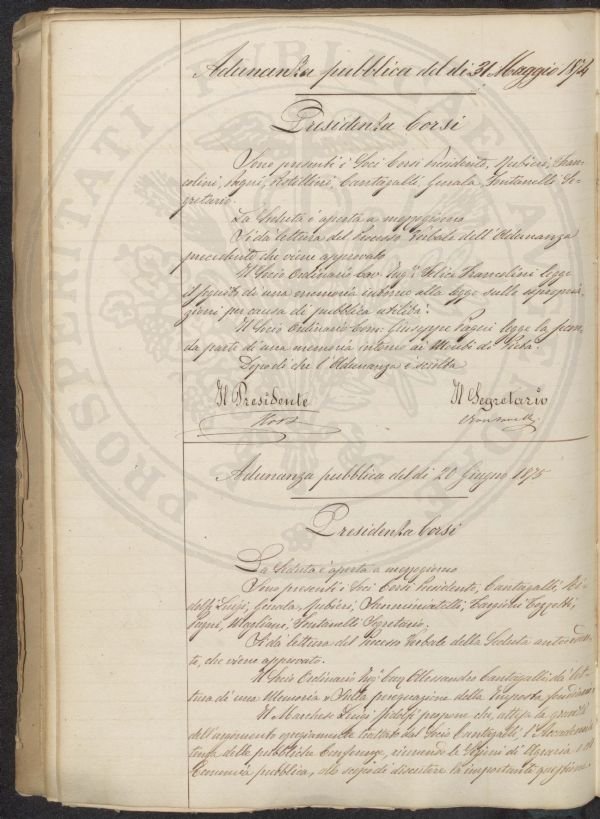 Adunanza pubblica del dì 31 Maggio 1874
Presidenza Corsi
Sono presenti i Soci Corsi Presidente, Rubieri, Fran-
colini, Pagni, Cantagalli, Genala, Fontanelli Se-
gretario.
La Seduta è aperta a mezzogiorno
Si dà lettura del Processo Verbale dell'Adunanza
precedente che viene approvato
Il Socio Ordinario Cav. Ing.e Felice Francolini legge
il seguito di una memoria intorno alla legge sulle espropria-
zioni per causa di pubblica utilità.
Il Socio Ordinario Com. Giuseppe Pagni legge la secon-
da parte di una memoria intorno ai Monti di Pietà.
Dopo di che l'Adunanza è sciolta
Il Presidente Il Segretario
Adunanza pubblica del dì 20 Giugno 1875
Presidenza Corsi
La Seduta è aperta a mezzogiorno
Sono presenti i Soci Corsi Presidente, Cantagalli, Ri-
dolfi Luigi, Genala, Rubieri, Samminiatelli, Targioni Tozzetti,
Pagni, Magliani, Fontanelli Segretario.
Si dà lettura del Processo Verbale della Seduta anteceden-
te, che viene approvato.
Il Socio Ordinario Ing.e Cav. Alessandro Cantagalli dà let-
tura di una Memoria "Sulla perequazione della Imposta fondiaria"
Il Marchese Luigi Ridolfi propone che, attesa la gravità
dell'argomento egregiamente trattato dal Socio Cantagalli, l'Accademia
tenga delle pubbliche Conferenze, riunendo le Sezioni di Agraria e di
Economia pubblica, allo scopo di discutere la importante questione.